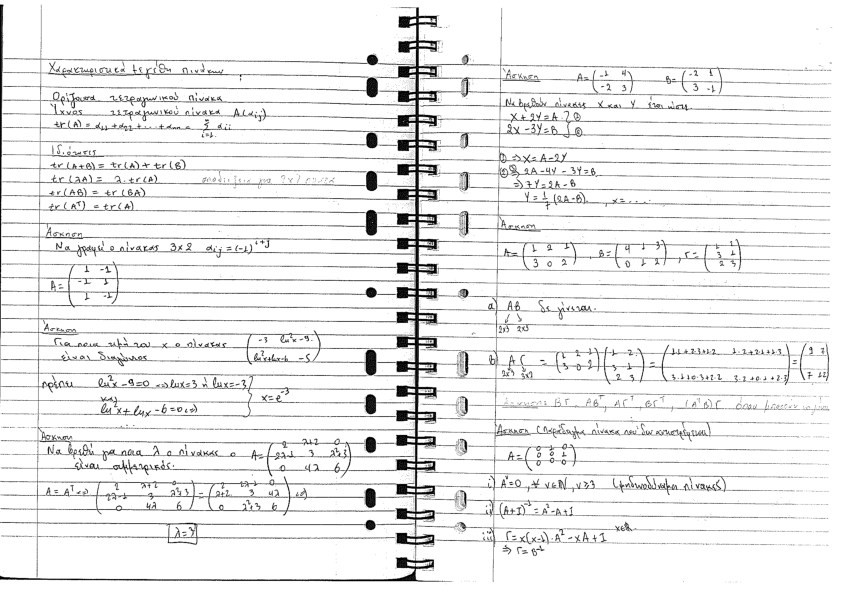 Χαρακτηριστικά μεγέθη πινάκων
Ορίζουσα τετραγωνικού πίνακα
Ίχνος τετραγωνικού πίνακα A(αij)
tr(A) = α11+α22+...+αnn = Σ αii
i=1
Ιδιότητες
tr(A+B) = tr(A) + tr(B)
tr(λA) = λ·tr(A) αποδείξεις για 2x2
tr(AB) = tr(BA)
tr(Aᵀ) = tr(A)
Άσκηση
Να γραφεί ο πίνακας 3x2 αij = (-1)^i+j
A = ( 1 -1
-1 1
1 -1 )
Άσκηση
Για ποια τιμή του x ο πίνακας ( -3 ln²x-9
είναι διαγώνιος ln²x+lnx-6 -5 )
πρέπει ln²x-9=0 => lnx=3 ή lnx=-3
και } x=e⁻³
ln²x+lnx-6=0
Άσκηση
Να βρεθεί για ποια λ ο πίνακας A= ( 2 λ+2 0
2λ-1 3 λ²+3
0 4λ 6 )
είναι συμμετρικός.
A = Aᵀ <=> ( 2 λ+2 0
2λ-1 3 λ²+3
0 4λ 6 ) = ( 2 2λ-1 0
λ+2 3 4λ
0 λ²+3 6 ) <=>
λ=3
Άσκηση A = ( -1 4
-2 3 ) B = ( -2 1
3 -1 )
Να βρεθούν πίνακες X και Y έτσι ώστε
X + 2Y = A ①
2X - 3Y = B ②
① => X = A-2Y
② => 2A-4Y-3Y=B
=> 7Y = 2A-B
Y = 1/7 (2A-B) , x=....
Άσκηση
A = ( 1 2 1
3 0 2 ) , B = ( 4 1 3
0 1 2 ) , Γ = ( 1 2
3 1
2 3 )
a) AB δε γίνεται.
2x3 2x3
β) AΓ = ( 1 2 1
3 0 2 ) ( 1 2
3 1
2 3 ) = ( 1·1+2·3+1·2 1·2+2·1+1·3
3·1+0·3+2·2 3·2+0·1+2·3 ) = ( 9 7
7 12 )
2x3 3x2
BΓ, ABᵀ, AΓᵀ, BΓᵀ, (AᵀB)Γ όπου
Άσκηση (Παράδειγμα πίνακα που δεν αντιστρέφεται)
A = ( 0 1 0
0 0 1
0 0 0 )
i) Aᵛ=0, ∀ ν∈ℕ, ν≥3 (μηδενοδύναμοι πίνακες)
ii) (A+I)⁻¹ = A²-A+I
iii) Γ = x(x-1)·A² - xA + I x∈ℝ
=> Γ = B⁻¹